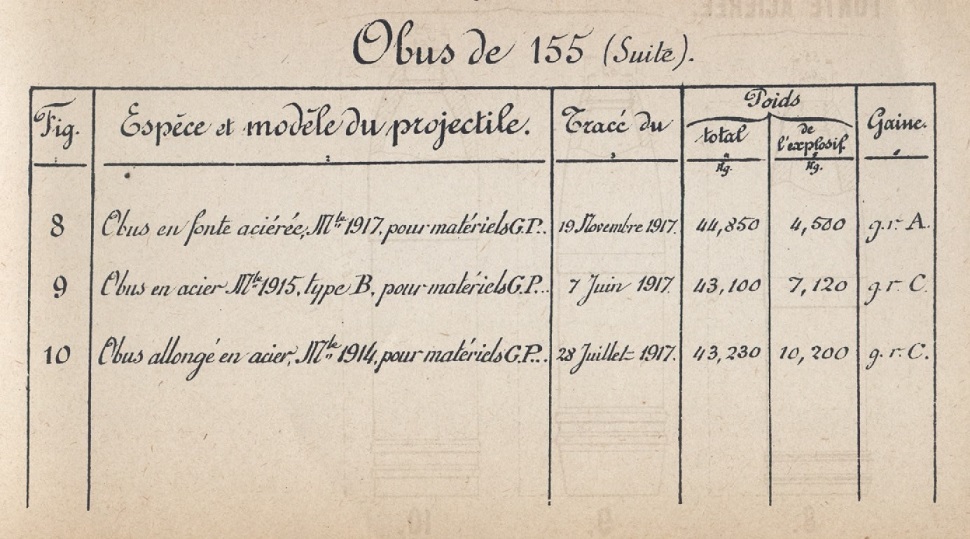 Obus de 155 (Suite).
Fig. Espèce et modèle du projectile. Tracé du Poids Gaine.
total de l'explosif
Kg. Kg.
8 Obus en fonte aciérée, Mle 1917, pour matériels G.P.. 19 Novembre 1917. 44,850 4,500 g.r. A.
9 Obus en acier Mle 1915, type B, pour matériels G.P... 7 Juin 1917 43,100 7,120 g.r. C.
10 Obus allongé en acier, Mle 1914, pour matériels G.P... 28 Juillet 1917. 43,230 10,200 g.r. C.